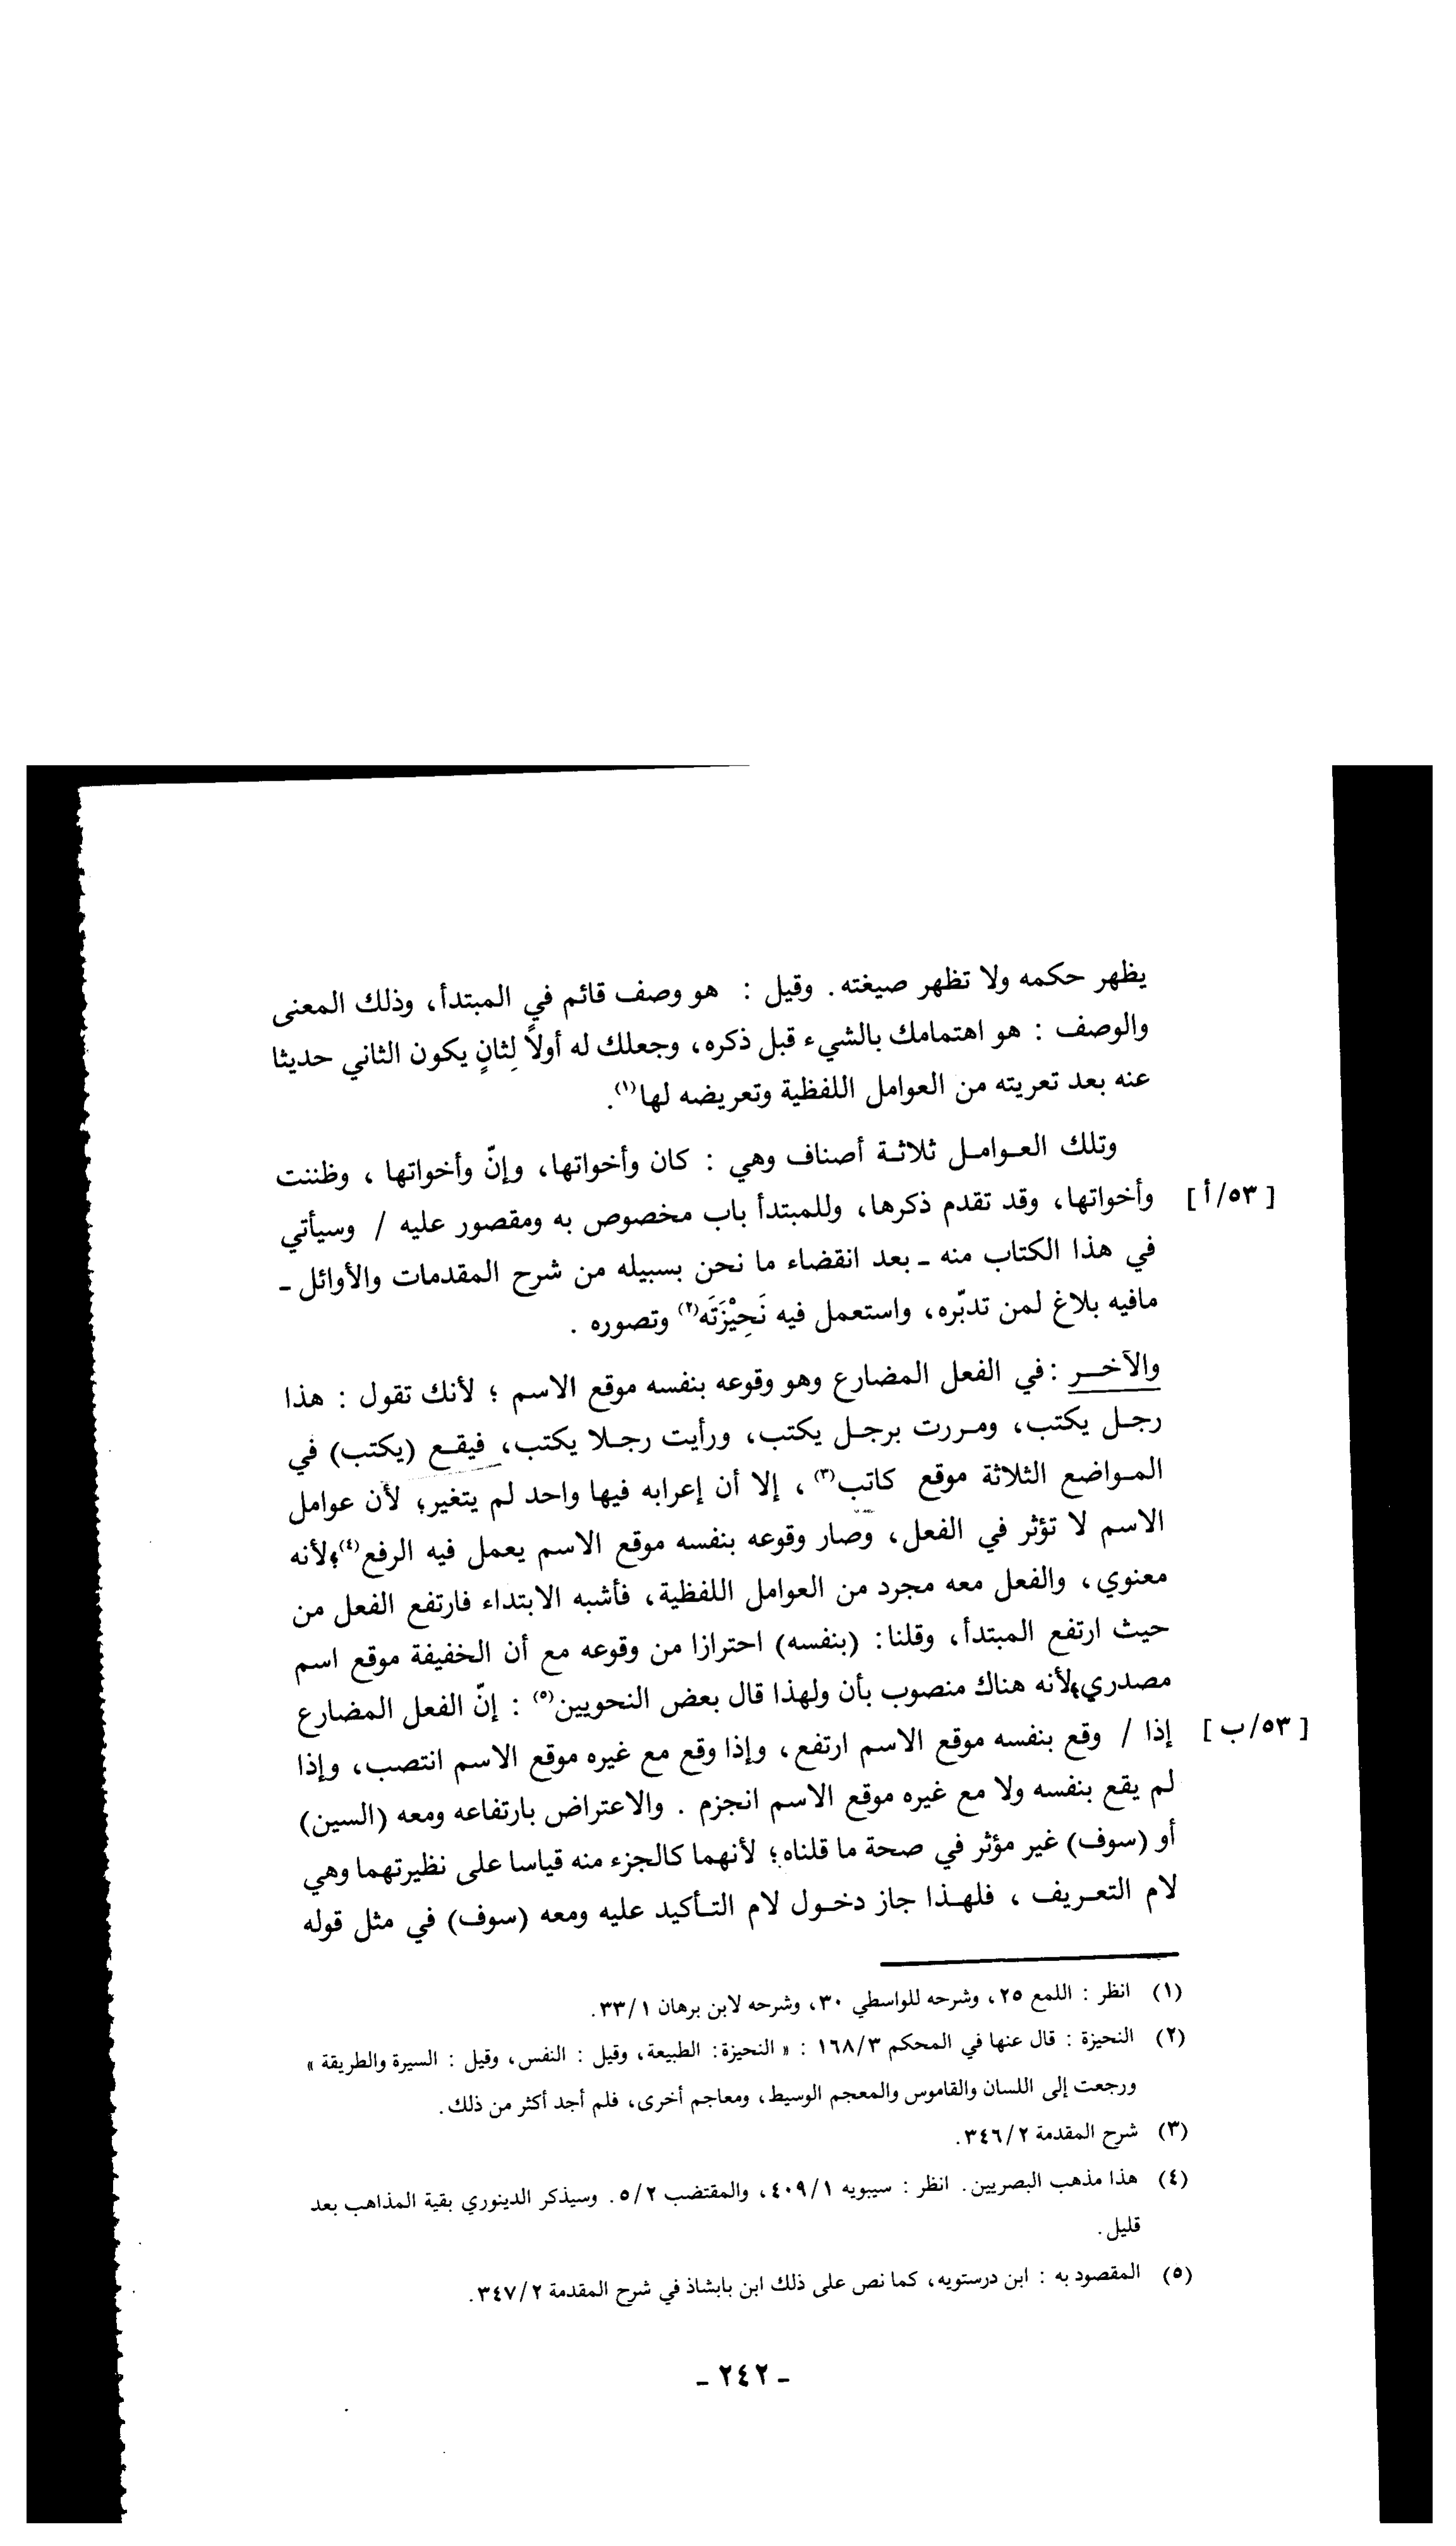 يظهر حكمه ولا تظهر صيغته. وقيل : هو وصف قائم في المبتدأ، وذلك المعنى
والوصف : هو اهتمامك بالشيء قبل ذكره، وجعلك له أولاً لِثانٍ يكون الثاني حديثا
عنه بعد تعريته من العوامل اللفظية وتعريضه لها(١).
وتلك العوامل ثلاثة أصناف وهي : كان وأخواتها، وإنّ وأخواتها ، وظننت
[ ٥٣/أ ] وأخواتها، وقد تقدم ذكرها، وللمبتدأ باب مخصوص به ومقصور عليه / وسيأتي
في هذا الكتاب منه ـ بعد انقضاء ما نحن بسبيله من شرح المقدمات والأوائل ـ
مافيه بلاغ لمن تدبّره، واستعمل فيه نَحِيْزَتَه(٢) وتصوره .
والآخر : في الفعل المضارع وهو وقوعه بنفسه موقع الاسم ؛ لأنك تقول : هذا
رجل يكتب، ومررت برجل يكتب، ورأيت رجلا يكتب، فيقع (يكتب) في
المواضع الثلاثة موقع كاتب(٣) ، إلا أن إعرابه فيها واحد لم يتغير؛ لأن عوامل
الاسم لا تؤثر في الفعل، وصار وقوعه بنفسه موقع الاسم يعمل فيه الرفع(٤)؛ لأنه
معنوي، والفعل معه مجرد من العوامل اللفظية، فأشبه الابتداء فارتفع الفعل من
حيث ارتفع المبتدأ، وقلنا: (بنفسه) احترازا من وقوعه مع أن الخفيفة موقع اسم
مصدري؛ لأنه هناك منصوب بأن ولهذا قال بعض النحويين(٥) : إنّ الفعل المضارع
[ ٥٣/ب ] إذا / وقع بنفسه موقع الاسم ارتفع، وإذا وقع مع غيره موقع الاسم انتصب، وإذا
لم يقع بنفسه ولا مع غيره موقع الاسم انجزم . والاعتراض بارتفاعه ومعه (السين)
أو (سوف) غير مؤثر في صحة ما قلناه؛ لأنهما كالجزء منه قياسا على نظيرتهما وهي
لام التعريف ، فلهذا جاز دخول لام التأكيد عليه ومعه (سوف) في مثل قوله
(١) انظر : اللمع ٢٥، وشرحه للواسطي ٣٠، وشرحه لابن برهان ٣٣/١.
(٢) النحيزة : قال عنها في المحكم ١٦٨/٣ : « النحيزة: الطبيعة، وقيل : النفس، وقيل : السيرة والطريقة »
ورجعت إلى اللسان والقاموس والمعجم الوسيط، ومعاجم أخرى، فلم أجد أكثر من ذلك.
(٣) شرح المقدمة ٣٤٦/٢.
(٤) هذا مذهب البصريين. انظر : سيبويه ٤٠٩/١، والمقتضب ٥/٢. وسيذكر الدينوري بقية المذاهب بعد
قليل.
(٥) المقصود به : ابن درستويه، كما نص على ذلك ابن بابشاذ في شرح المقدمة ٣٤٧/٢.
ـ ٢٤٢ ـ